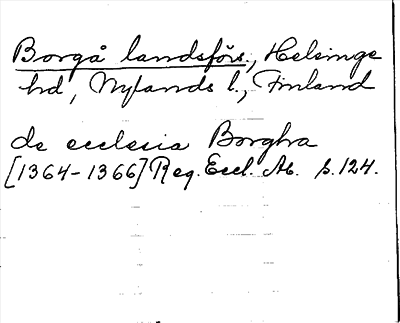 Borgå landsförs., Helsinge
hd, Nylands l., Finland
de ecclesia Borgha
[1364-1366] Reg. Eccl. Ab. s. 124.